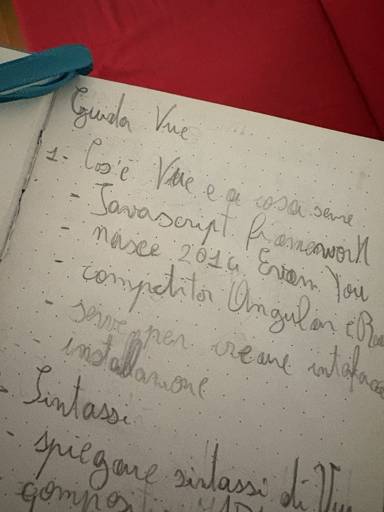 Guida Vue
1- Cos'è Vue e a cosa serve
- Javascript framework
- nasce 2014 Evan You
- competitor Angular e
- serve per creare
- installazione
- Sintassi
- spiegare sintassi di